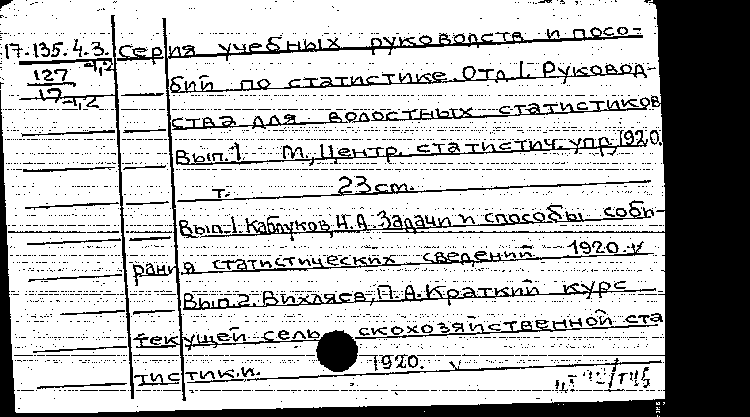 17.135.4.3. Серия учебных руководств и посо-
127 -1,2 бий по статистике. Отд. 1. Руковод-
17 -1,2 ства для волостных статистиков
Вып.1. М., Центр. статистич. упр., 1920.
т. 23 cm.
Вып.1. Каблуков, Н.А. Задачи и способы соби-
рания статистических сведений 1920. v
Вып.2. Вихляев, П.А. Краткий курс
текущей сельскохозяйственной ста
тистики. 1920. v